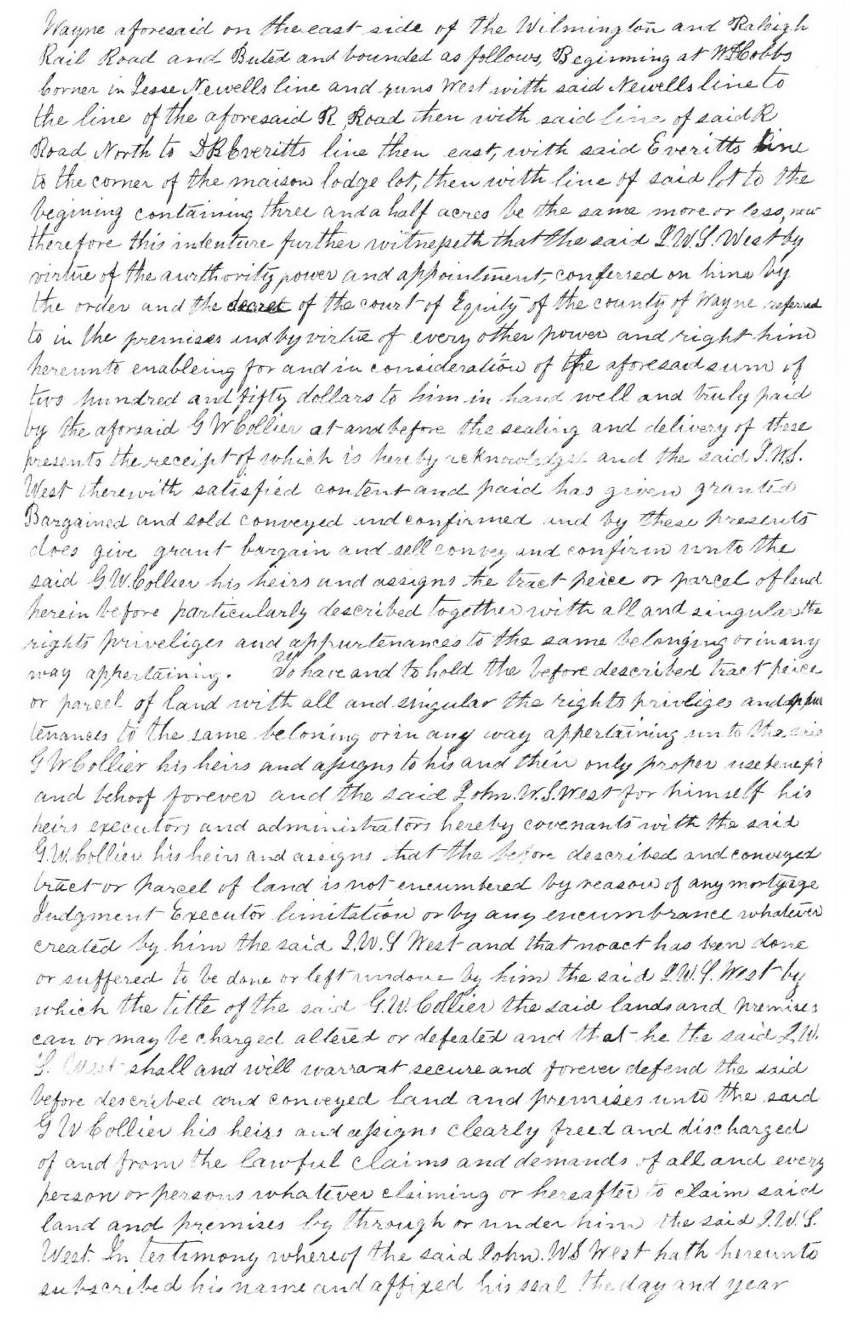 Wayne aforesaid on the east side of the Wilmington and Raleigh
Rail Road and Buted and bounded as follows, Beginning at W H Cobbs
Corner in Jesse Newells line and runs West with said Newells line to
the line of the aforesaid R Road then with said line of said R
Road North to D B Everitts line then east, with said Everitts line
to the corner of the maison lodge lot, then with line of said lot to the
begining containing three and a half acres be the same more or less, now
therefore this indenture further witnesseth that the said J. W. S. West by
virtue of the aurthority power and appointment, conferred on hime by
the order and the decree of the court of Equity of the county of Wayne referred
to in the premises and by virtue of every other power and right him
hereunto enableing for and in consideration of the aforesaid sum of
two hundred and fifty dollars to him in hand well and truly paid
by the aforsaid G W Collier at and before the sealing and delivery of these
presents the receipt of which is hereby acknowledged and the said J. W. S.
West therewith satisfied content and paid has given granted
Bargained and sold conveyed and confirmed and by these presents
does give grant bargain and sell convey and confirm unto the
said G W. Collier his heirs and assigns the tract peice or parcel of land
herein before particularly described together with all and singular the
rights priveliges and appurtenances to the same belonging or in any
way appertaining. To have and to hold the before described tract peice
or parcel of land with all and singular the rights priviliges and appur
tenances to the same beloning or in any way appertaining unto the said
G W Collier his heirs and assigns to his and their only proper use benefit
and behoof forever and the said John. W. S. West for himself his
heirs executors and administrators hereby covenants with the said
G. W. Collier his heirs and assigns that the before described and conveyed
tract or parcel of land is not encumbered by reason of any mortgage
Judgment Executor limitation or by any encumbrance whatever
created by him the said J. W. S West and that no act has been done
or suffered to be done or left undone by him the said J. W. S. West by
which the title of the said G. W. Collier the said lands and premises
can or may be charged altered or defeated and that he the said J. W.
S. West shall and will warrant secure and forever defend the said
before described and conveyed land and premises unto the said
G W Collier his heirs and assigns clearly freed and discharged
of and from the lawful claims and demands of all and every
person or persons whatever claiming or hereafter to claim said
land and premises by through or under him the said J. W. S.
West. In testimony whereof the said John. W S West hath hereunto
subscribed his name and affixed his seal the day and year